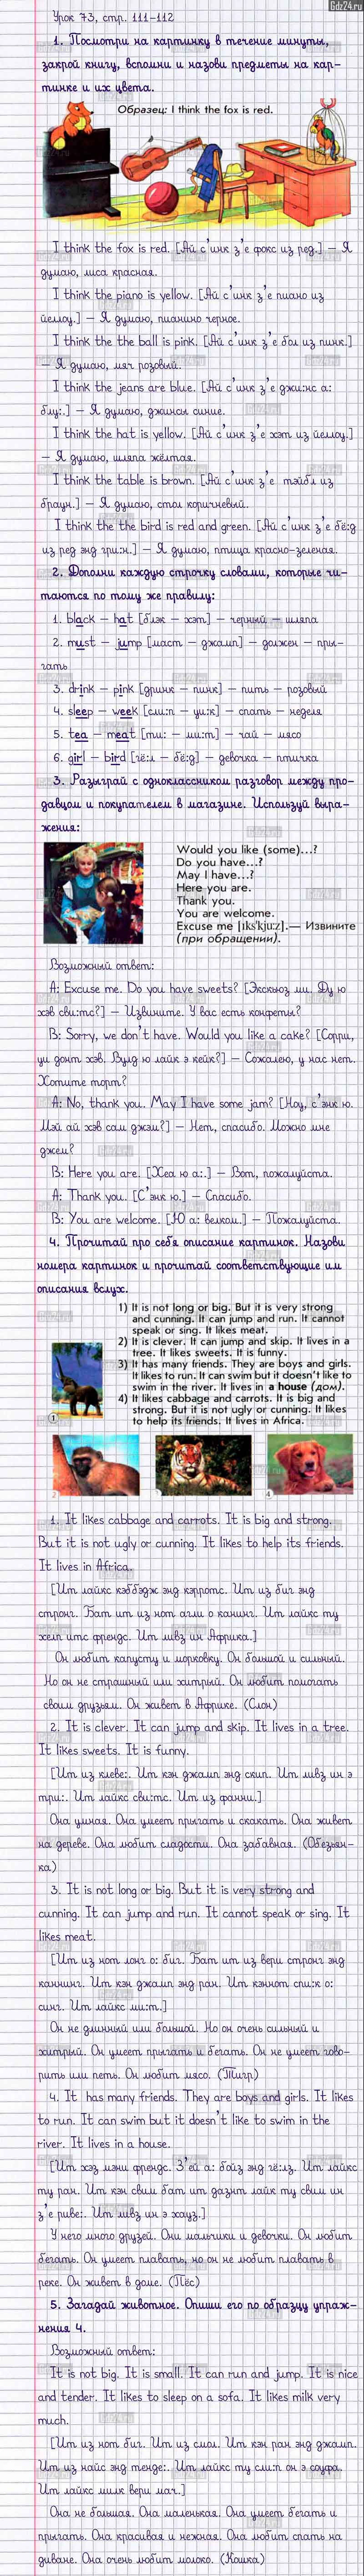 Gdz24.ru
Урок 73, стр. 111-112
1. Посмотри на картинку в течение минуты,
закрой книгу, вспомни и назови предметы на кар-
тинке и их цвета.
Образец: I think the fox is red.
I think the fox is red. [Ай с'инк з'е фокс из ред.] – Я
думаю, лиса красная.
I think the piano is yellow. [Ай с'инк з'е пиано из
йеллоу.] – Я думаю, пианино черное.
I think the the ball is pink. [Ай с'инк з'е бол из пинк.]
– Я думаю, мяч розовый.
I think the jeans are blue. [Ай с'инк з'е джи:нс а:
блу:.] – Я думаю, джинсы синие.
I think the hat is yellow. [Ай с'инк з'е хэт из йеллоу.]
– Я думаю, шляпа жёлтая.
I think the table is brown. [Ай с'инк з'е тэйбл из
браун.] – Я думаю, стол коричневый.
I think the the bird is red and green. [Ай с'инк з'е бё:д
из ред энд гри:н.] – Я думаю, птица красно-зеленая.
2. Дополни каждую строчку словами, которые чи-
таются по тому же правилу:
1. black – hat [блэк – хэт] – черный – шляпа
2. must – jump [маст – джамп] – должен – пры-
гать
3. drink – pink [дринк – пинк] – пить – розовый
4. sleep – week [сли:п – уи:к] – спать – неделя
5. tea – meat [ти: – ми:т] – чай – мясо
6. girl – bird [гё:л – бё:д] – девочка – птичка
3. Разыграй с одноклассником разговор между про-
давцом и покупателем в магазине. Используй выра-
жения:
Would you like (some)...?
Do you have...?
May I have...?
Here you are.
Thank you.
You are welcome.
Excuse me [ɪksˈkjuːz].— Извините
(при обращении).
Возможный ответ:
A: Excuse me. Do you have sweets? [Экскьюз ми. Ду ю
хэв сви:тс?] – Извините. У вас есть конфеты?
B: Sorry, we don't have. Would you like a cake? [Сорри,
уи донт хэв. Вулд ю лайк э кейк?] – Сожалею, у нас нет.
Хотите торт?
A: No, thank you. May I have some jam? [Ноу, с'энк ю.
Мэй ай хэв сам джэм?] – Нет, спасибо. Можно мне
джем?
B: Here you are. [Хеа ю а:.] – Вот, пожалуйста.
A: Thank you. [С'энк ю.] – Спасибо.
B: You are welcome. [Ю а: велком.] – Пожалуйста.
4. Прочитай про себя описание картинок. Назови
номера картинок и прочитай соответствующие им
описания вслух.
1) It is not long or big. But it is very strong
and cunning. It can jump and run. It cannot
speak or sing. It likes meat.
2) It is clever. It can jump and skip. It lives in a
tree. It likes sweets. It is funny.
3) It has many friends. They are boys and girls.
It likes to run. It can swim but it doesn't like to
swim in the river. It lives in a house (дом).
4) It likes cabbage and carrots. It is big and
strong. But it is not ugly or cunning. It likes
to help its friends. It lives in Africa.
1
2
4
1. It likes cabbage and carrots. It is big and strong.
But it is not ugly or cunning. It likes to help its friends.
It lives in Africa.
[Ит лайкс кэббэдж энд кэрротс. Ит из биг энд
стронг. Бат ит из нот агли о канинг. Ит лайкс ту
хелп итс френдс. Ит ливз ин Африка.]
Он любит капусту и морковку. Он большой и сильный.
Но он не страшный или хитрый. Он любит помогать
своим друзьям. Он живет в Африке. (Слон)
2. It is clever. It can jump and skip. It lives in a tree.
It likes sweets. It is funny.
[Ит из клеве:. Ит кэн джамп энд скип. Ит ливз ин э
три:. Ит лайкс сви:тс. Ит из фанни.]
Она умная. Она умеет прыгать и скакать. Она живет
на дереве. Она любит сладости. Она забавная. (Обезьян-
ка)
3. It is not long or big. But it is very strong and
cunning. It can jump and run. It cannot speak or sing. It
likes meat.
[Ит из нот лонг о: биг. Бат ит из вери стронг энд
каннинг. Ит кэн джамп энд ран. Ит кэннот спи:к о:
синг. Ит лайкс ми:т.]
Он не длинный или большой. Но он очень сильный и
хитрый. Он умеет прыгать и бегать. Он не умеет гово-
рить или петь. Он любит мясо. (Тигр)
4. It has many friends. They are boys and girls. It likes
to run. It can swim but it doesn't like to swim in the
river. It lives in a house.
[Ит хэз мэни френдс. З'ей а: бойз энд гё:лз. Ит лайкс
ту ран. Ит кэн свим бат ит дазнт лайк ту свим ин
з'е риве:. Ит ливз ин э хауз.]
У него много друзей. Они мальчики и девочки. Он любит
бегать. Он умеет плавать, но он не любит плавать в
реке. Он живет в доме. (Пёс)
5. Загадай животное. Опиши его по образцу упраж-
нения 4.
Возможный ответ:
It is not big. It is small. It can run and jump. It is nice
and tender. It likes to sleep on a sofa. It likes milk very
much.
[Ит из нот биг. Ит из смол. Ит кэн ран энд джамп.
Ит из найс энд тенде:. Ит лайкс ту сли:п он э соуфа.
Ит лайкс милк вери мач.]
Она не большая. Она маленькая. Она умеет бегать и
прыгать. Она красивая и нежная. Она любит спать на
диване. Она очень любит молоко. (Кошка)